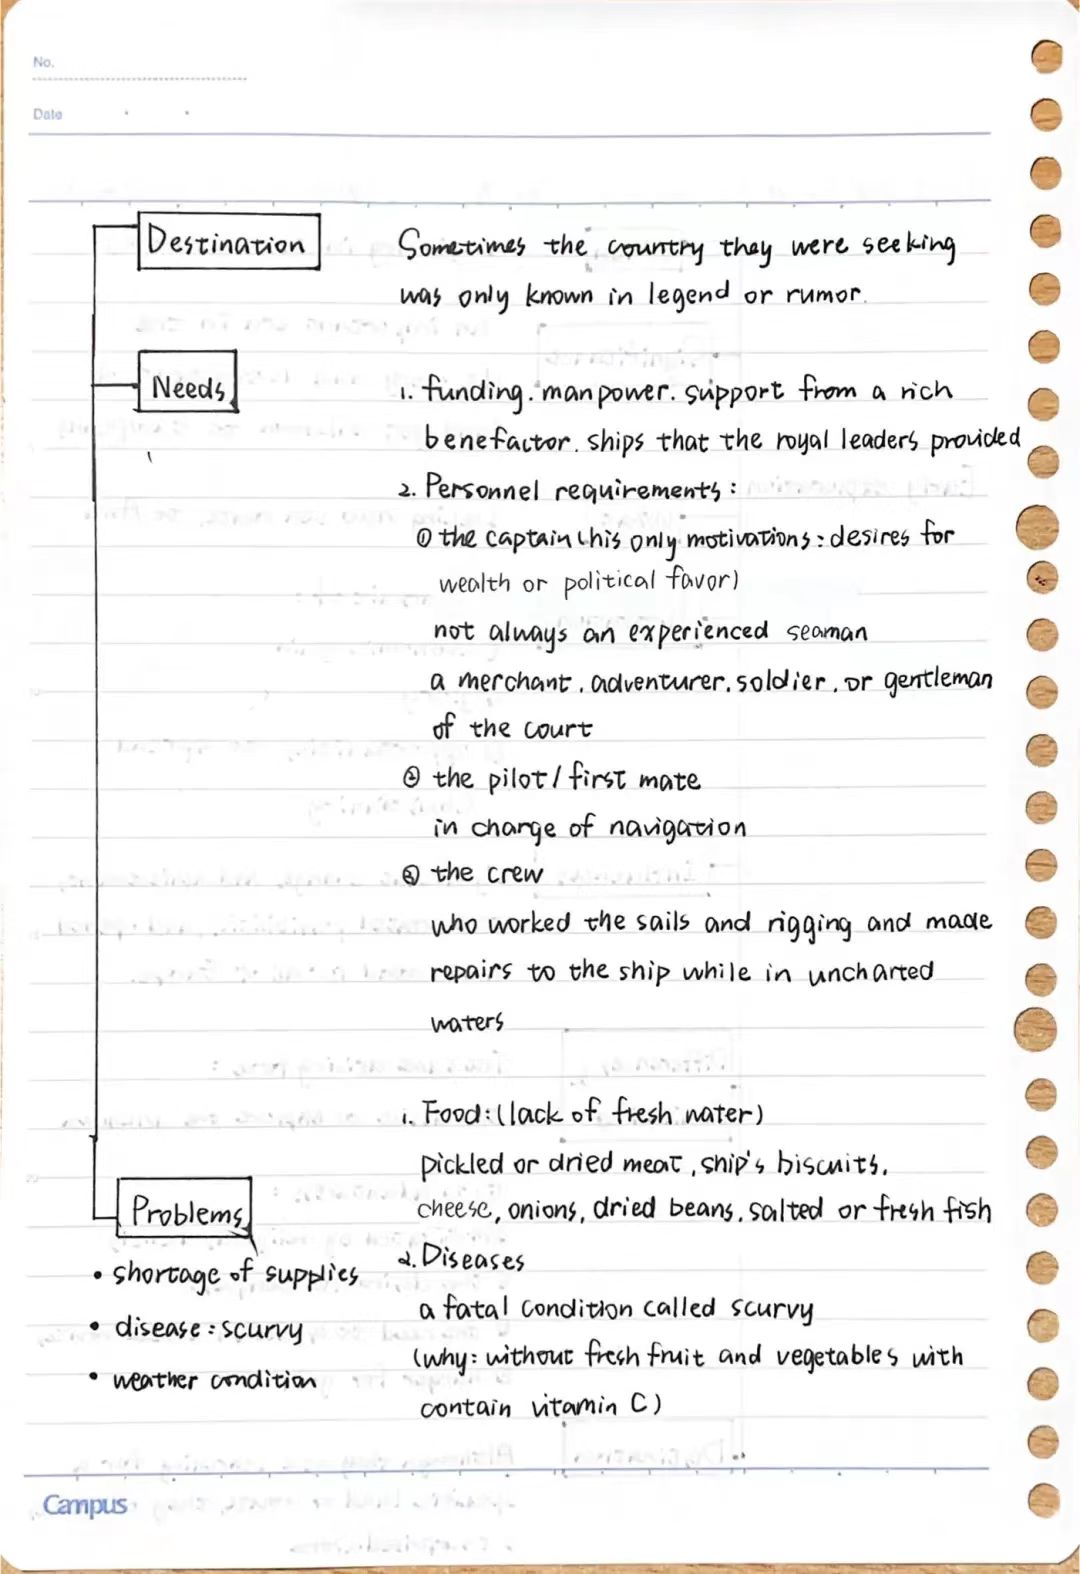 No.
Date
Destination
Sometimes the country they were seeking
was only known in legend or rumor.
Needs
1. funding. manpower. support from a rich
benefactor. ships that the royal leaders provided
2. Personnel requirements:
① the captain (his only motivations: desires for
wealth or political favor)
not always an experienced seaman
a merchant, adventurer, soldier, or gentleman
of the court
② the pilot / first mate
in charge of navigation
③ the crew
who worked the sails and rigging and made
repairs to the ship while in uncharted
waters
Problems
• shortage of supplies
• disease: scurvy
• weather condition
1. Food: (lack of fresh water)
pickled or dried meat, ship's biscuits,
cheese, onions, dried beans, salted or fresh fish
2. Diseases
a fatal condition called scurvy
(why: without fresh fruit and vegetables with
contain vitamin C)
Campus